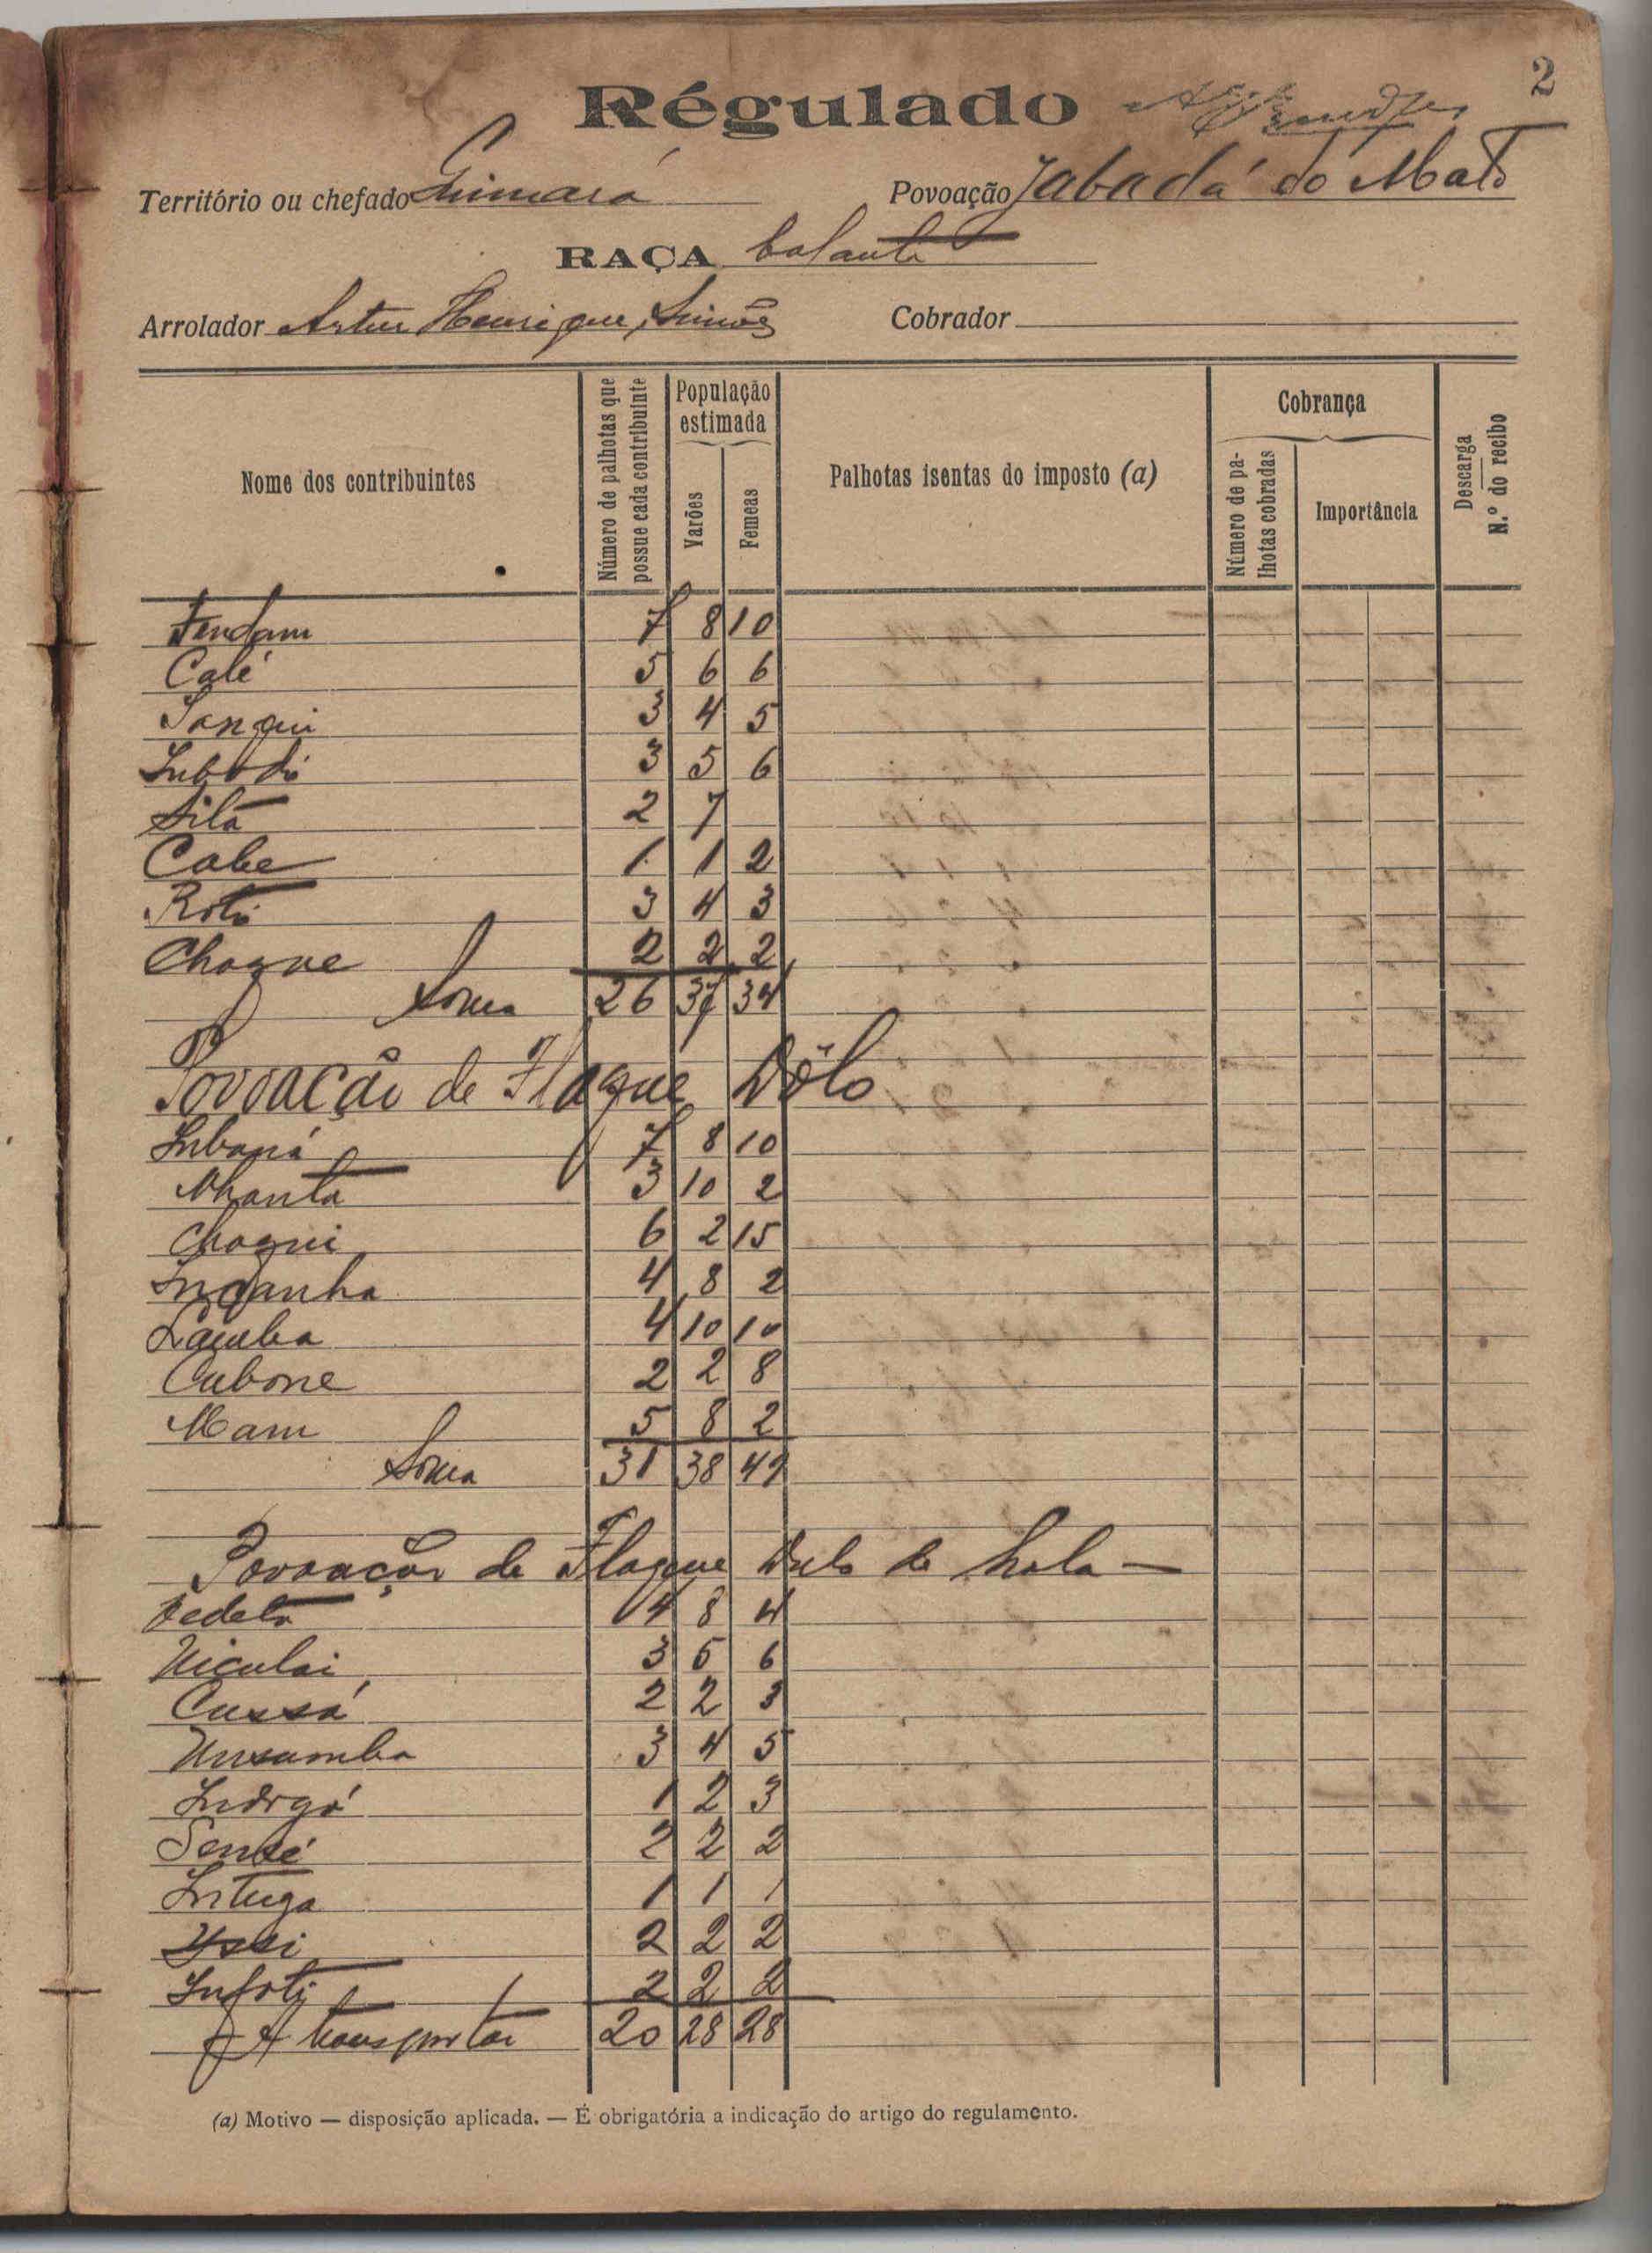 2
Régulado
Território ou chefado Guimará Povoação Jabadá do Mato
RAÇA balanta
Arrolador Artur Henrique Simões Cobrador
Nome dos contribuintes
Número de palhotas que possue cada contribuinte
População estimada
Varões
Femeas
Palhotas isentas do imposto (a)
Cobrança
Número de palhotas cobradas
Importância
Descarga
N.º do recibo
Fendam 7 8 10
Calé 5 6 6
Sanqui 3 4 5
Inbodi 3 5 6
Sita 2 7
Cabe 1 1 2
Roti 3 4 3
Chogue 2 2 2
Soma 26 37 34
Povoação de Flaque Dôlo
Inbaná 7 8 10
Nhanta 3 10 2
Choqui 6 2 15
Indanha 4 8 2
Lamba 4 10 10
Cubone 2 2 8
Mam 5 8 2
Soma 31 38 49
Povoação de Flaque Dulo de
4 8 4
Niculai 3 5 6
Cussá 2 2 3
Unsumba 3 4 5
Indrgó 1 2 3
2 2 2
Intuga 1 1 1
Yssi 2 2 2
Infoti 2 2 2
A transportar 20 28 28
(a) Motivo — disposição aplicada. — É obrigatória a indicação do artigo do regulamento.